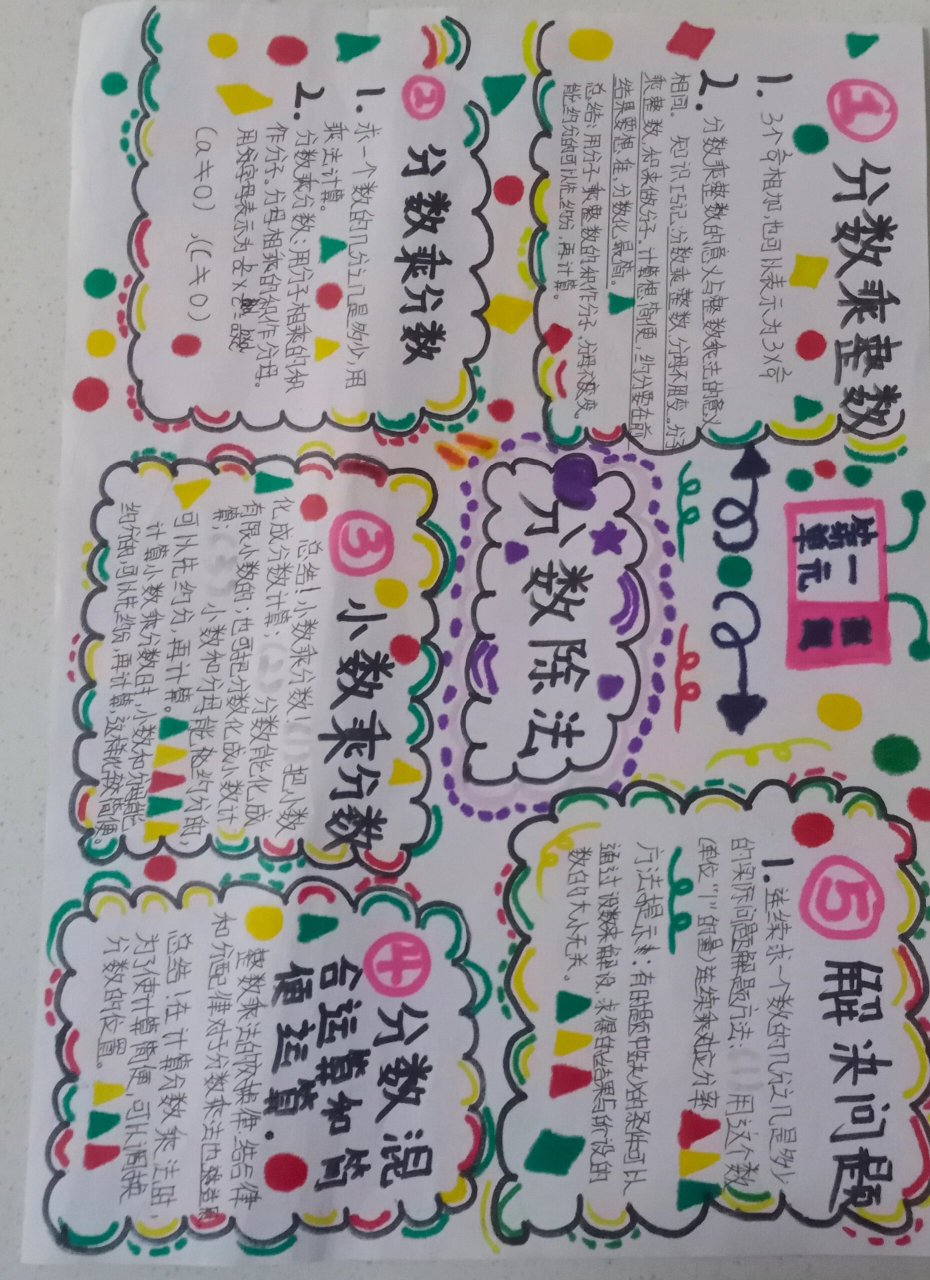 第一
单元
分数除法
① 分数乘整数
1. 3个
相加,也可以表示为3×
2. 分数乘整数的意义与整数乘法的意义
相同。知识巧记,分数乘整数,分母不用变。分子
乘整数,积来做分子。计算想简便,约分要在前
结果要想准,分数化最简。
总结:用分子乘整数的积作分子,分母不变。
能约分的可以先约分,再计算。
② 分数乘分数
1. 求一个数的几分之几是多少,用
乘法计算。
2. 分数乘分数:用分子相乘的积
作分子,分母相乘的积作分母。
用字母表示为
(a≠0),(c≠0)
③ 小数乘分数
总结!小数乘分数!(1)把小数
化成分数计算;(2)分数能化成
有限小数的;也可把分数化成小数计
算;(3)小数和分母能够约分的,
可以先约分,再计算。
计算小数乘分数时,小数和分母能
约分的,可以先约分,再计算,这样比较简便。
④ 分数混
合运算和简
便运算.
整数乘法的交换律、结合律
和分配律对于分数乘法也
总结!在计算分数乘法时,
为了使计算简便,可以调换
分数的位置。
⑤ 解决问题
1. 连续求一个数的几分之几是多少
的实际问题解题方法:(1)用这个数
(单位“1”的量)连续乘对应分率
方法提示:有的题中缺少的条件可以
通过设数来解决,求得的结果与所设的
数的大小无关。